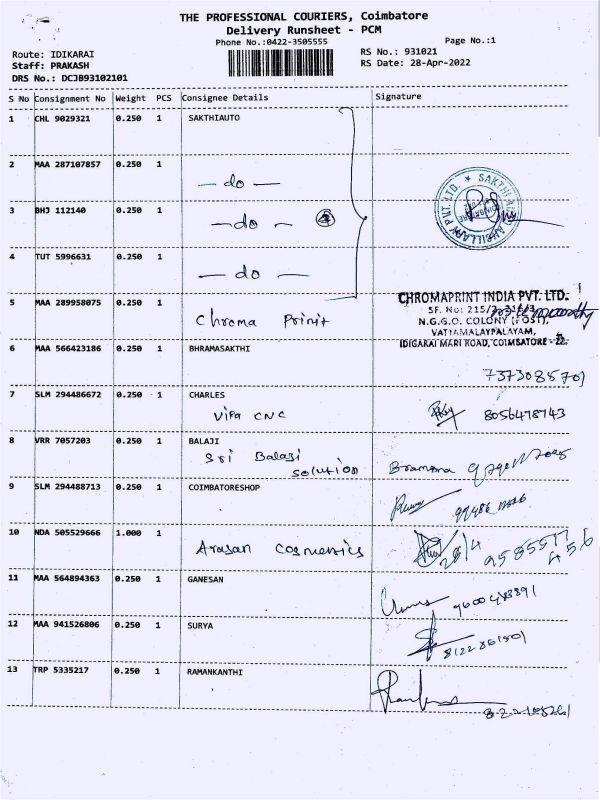 THE PROFESSIONAL COURIERS, Coimbatore
Delivery Runsheet - PCM
Phone No.:0422-3505555
Page No.:1
Route: IDIKARAI
Staff: PRAKASH
DRS No.: DCJB93102101
RS No.: 931021
RS Date: 28-Apr-2022
S No Consignment No Weight PCS Consignee Details Signature
1 CHL 9029321 0.250 1 SAKTHIAUTO
2 MAA 287107857 0.250 1
— do —
3 BHJ 112140 0.250 1
— do — 4
SAKTHI
PVT. LTD.
4 TUT 5996631 0.250 1
— do —
5 MAA 289958075 0.250 1
Chroma Prinit
CHROMAPRINT INDIA PVT. LTD.
SF. No: 215/3, 316/3
N.G.G.O. COLONY (POST),
VATTAMALAYPALAYAM,
IDIGARAI MARI ROAD, COIMBATORE - 22.
6 MAA 566423186 0.250 1 BHRAMASAKTHI
7373085701
7 SLM 294486672 0.250 1 CHARLES
Vipa CNC
8056478743
8 VRR 7057203 0.250 1 BALAJI
Sri Balaji
Solution
9 SLM 294488713 0.250 1 COIMBATORESHOP
10 NDA 505529666 1.000 1
Arasan Cosmetics
28/4
11 MAA 564894363 0.250 1 GANESAN
12 MAA 941526806 0.250 1 SURYA
13 TRP 5335217 0.250 1 RAMANKANTHI